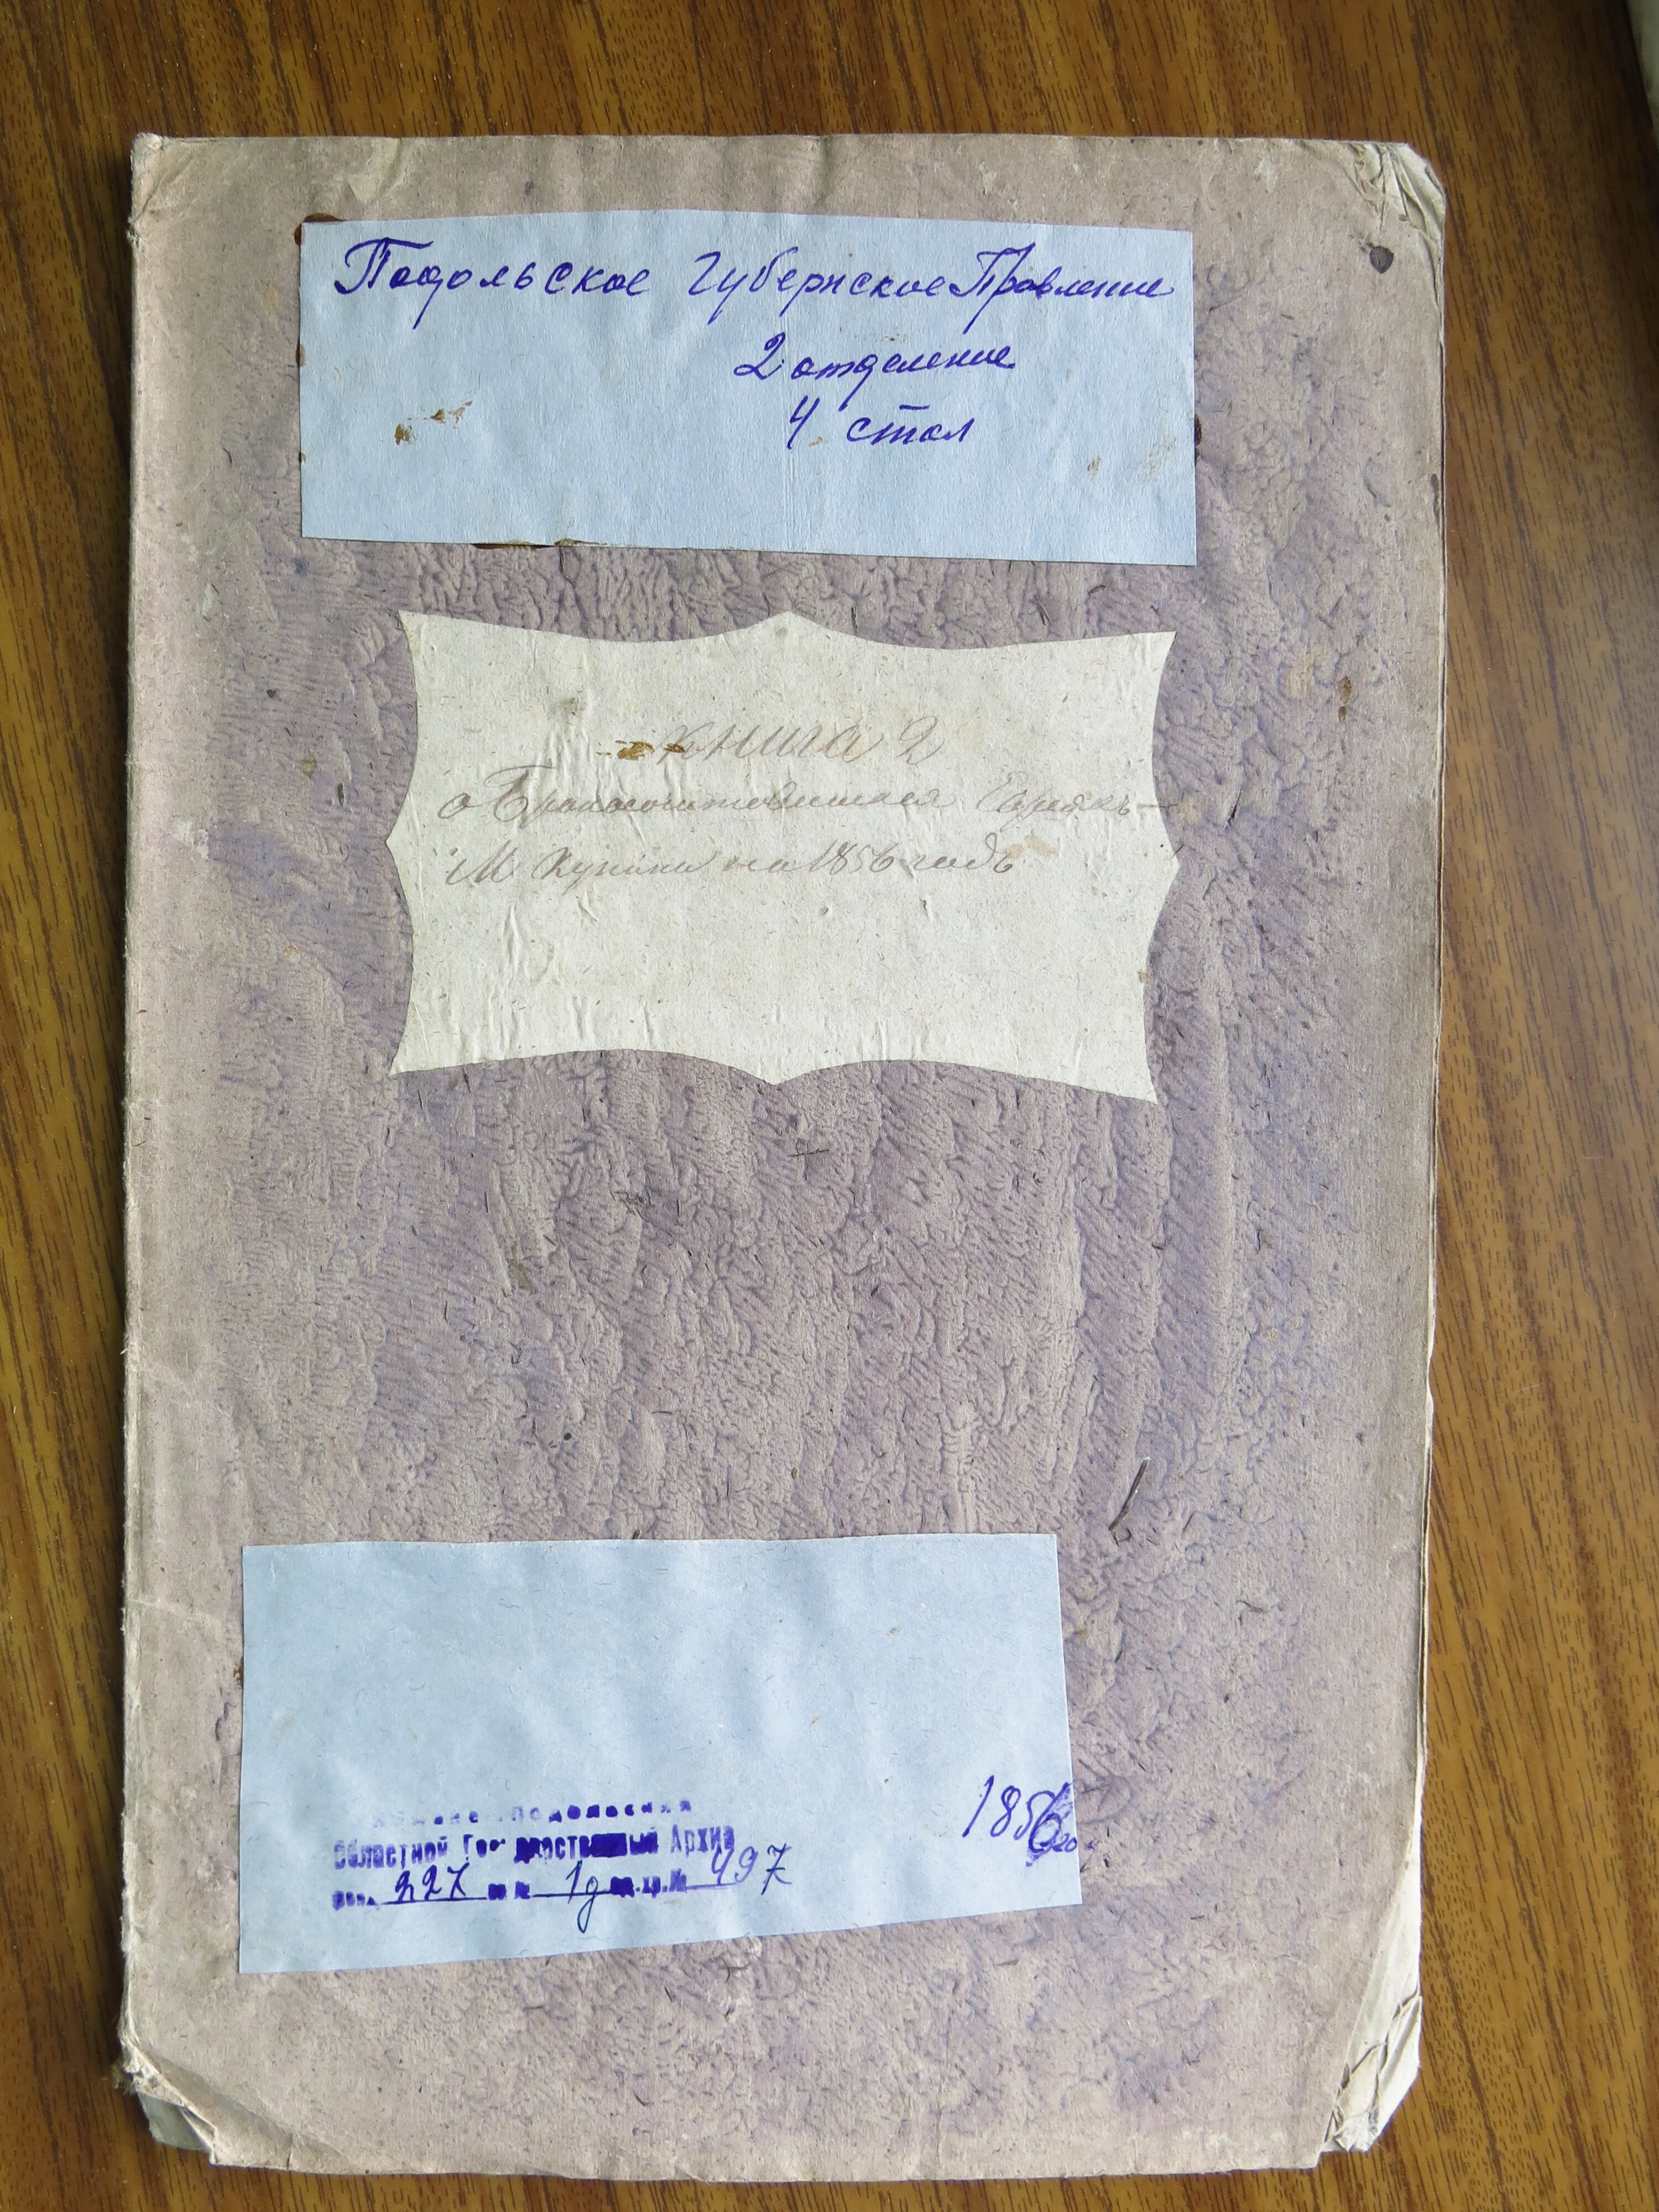 Подольское Губернское Правление
2 отделение
4 стол
Книга 2
о Бракосочетавшихся Евреях
М Купина на 1856 годъ
1856
Подольский
Областной Государственный Архив
фон. 227 оп № 1д ед.хр.№ 497